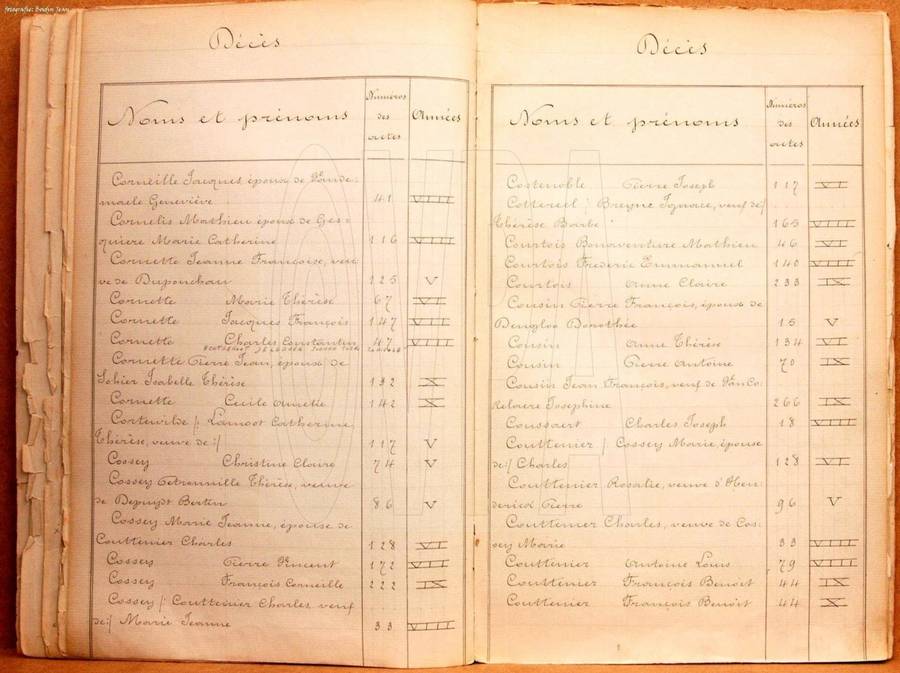 Fotografie: Boudin Jean
Décès
Noms et prénoms
Numéros des actes
Années
Corneille Jacques, époux de Vande-
maele Geneviève 41 VIII
Cornelis Mathieu époux de Ges-
quiere Marie Catherine 116 VIII
Cornette Jeanne Françoise, veu
ve de Duponchau 125 V
Cornette Marie Thérèse 67 VI
Cornette Jacques François 147 VII
Cornette Charles Constantin 47 VIII
Cornette Pierre Jean, époux de
Sohier Isabelle Thérèse 192 X
Cornette Cecile Amelie 142 IX
Cortewilde /: Lamoot Catherine
Thérèse, veuve de :/ 117 V
Cossey Christine Claire 74 V
Cossey Petronnille Thérèse, veuve
de Depuydt Bertin 86 V
Cossey Marie Jeanne, épouse de
Couttenier Charles 128 VI
Cossey Pierre Vincent 172 VII
Cossey François Corneille 222 IX
Cossey /: Couttenier Charles veuf
de :/ Marie Jeanne 33 VIII
Décès
Noms et prénoms
Numéros des actes
Années
Costenoble Pierre Joseph 117 VI
Cottereil /: Breyne Ignace, veuf de :/
Thérèse Barbe 165 VIII
Courtois Bonaventure Mathieu 46 VI
Courtois Frederic Emmanuel 140 VIII
Courtois Anne Claire 233 IX
Cousin Pierre François, époux de
Dorothée 15 V
Cousin Anne Thérèse 134 VI
Cousin Pierre Antoine 70 IX
Cousin Jean François, veuf de
Josephine 266 IX
Coussaert Charles Joseph 18 VIII
Couttenier /: Cossey Marie, épouse
de :/ Charles 128 VI
Couttenier Rosalie, veuve d'Hen-
dericx Pierre 96 V
Couttenier Charles, veuve de Cos-
sey Marie 33 VIII
Couttenier Antoine Louis 79 VIII
Couttenier François Benoit 44 IX
Couttenier François Benoit 44 X